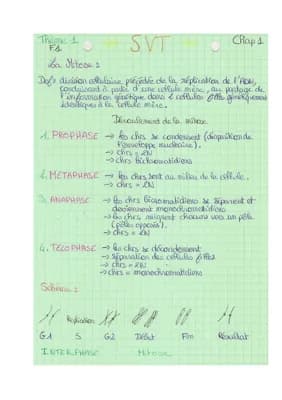 Thème 1 SVT Chap 1
F1
La Mitose :
Def° division cellulaire précédée de la réplication de l'ADN,
conduisant à partir d'une cellule mère, au partage de
l'information génétique dans 2 cellules filles génétiquement
identiques à la cellule mère.
Déroulement de la mitose
1. PROPHASE → les chrs se condensent (disparition de
l'enveloppe nucléaire).
→ chrs = 2N
→ chrs bichromatidiens
2. METAPHASE → les chrs sont au milieu de la cellule.
→ chrs = 2N
3. ANAPHASE → les chrs bichromatidiens se séparent et
deviennent monochromatidiens
→ les chrs migrent chacuns vers un pôle
(pôles opposés).
→ chrs = 2N
4. TELOPHASE → les chrs se décondensent
→ séparation des cellules filles
→ chrs = 2N
→ chrs = monochromatidiens
Schéma :
Réplication
G1 S G2 Début Fin Résultat
INTERPHASE Mitose